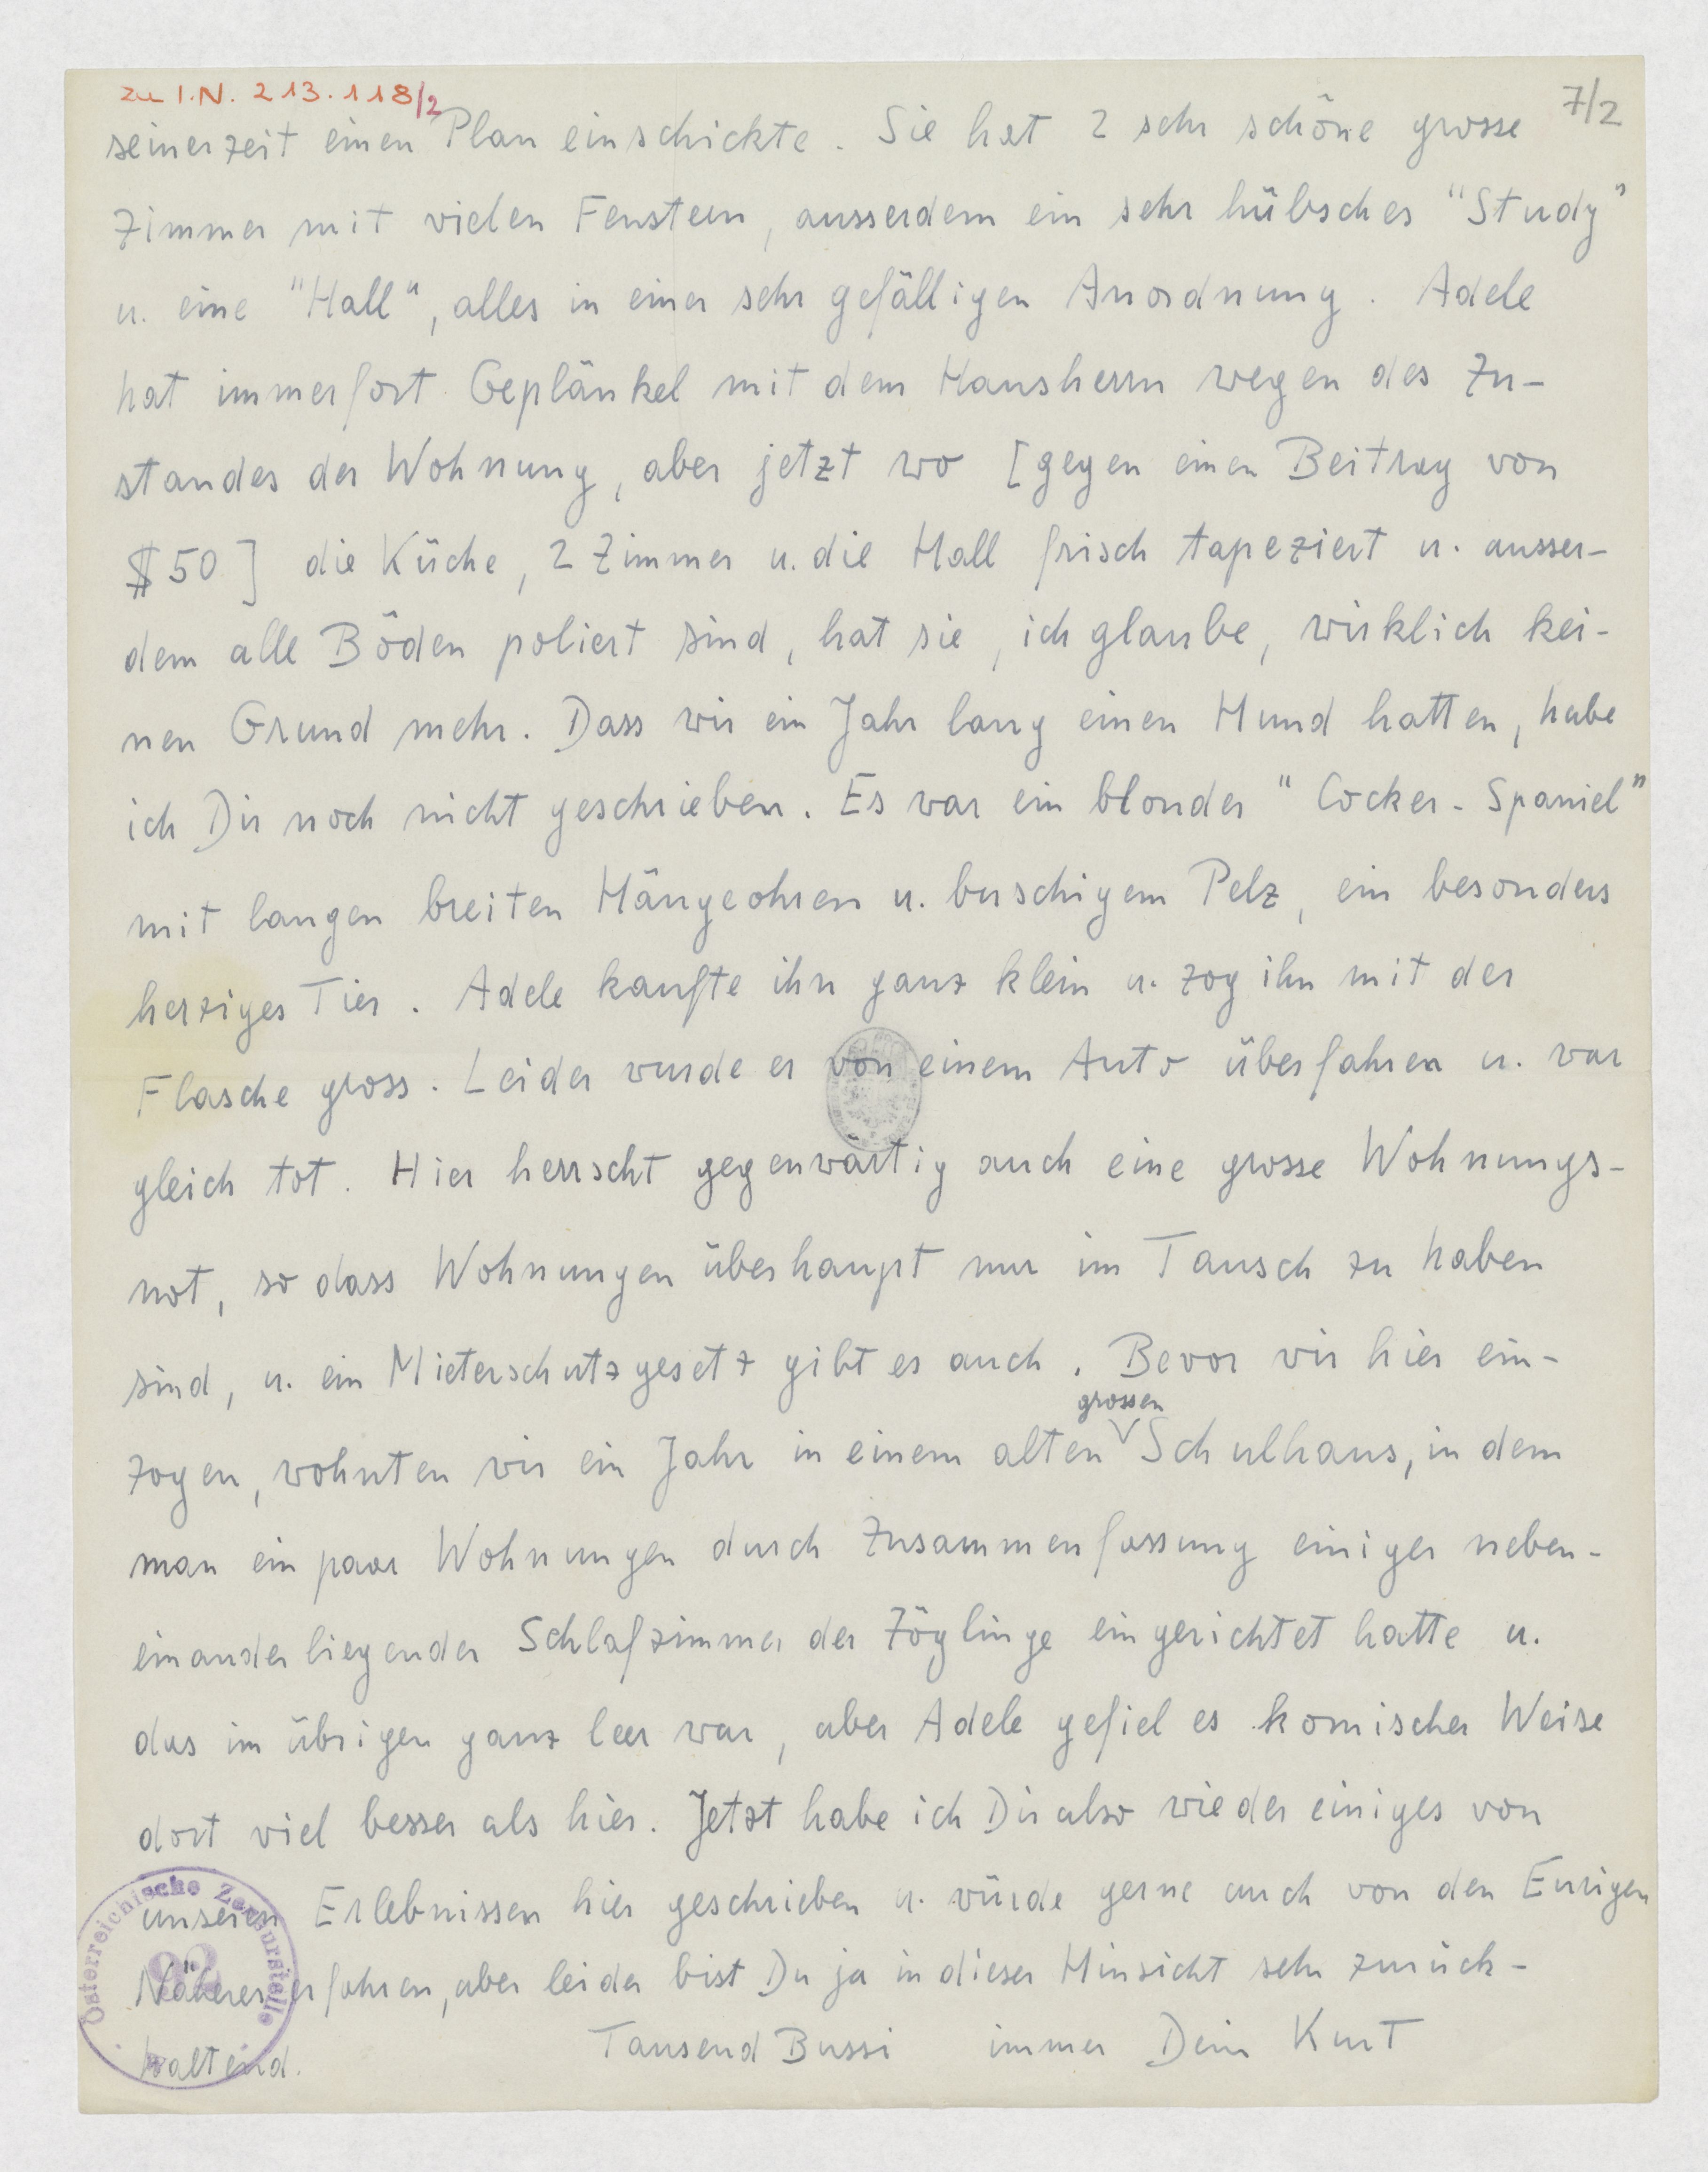 zu I.N. 213.118/2
7/2
seinerzeit einen Plan einschickte. Sie hat 2 sehr schöne grosse
Zimmer mit vielen Fenstern, ausserdem ein sehr hübsches "Study"
u. eine "Hall", alles in einer sehr gefälligen Anordnung. Adele
hat immerfort Geplänkel mit dem Hausherrn wegen des Zu-
standes der Wohnung, aber jetzt wo [gegen einen Beitrag von
$50] die Küche, 2 Zimmer u. die Hall frisch tapeziert u. ausser-
dem alle Böden poliert sind, hat sie, ich glaube, wirklich kei-
nen Grund mehr. Dass wir ein Jahr lang einen Hund hatten, habe
ich Dir noch nicht geschrieben. Es war ein blonder "Cocker-Spaniel"
mit langen breiten Hängeohren u. buschigem Pelz, ein besonders
herziges Tier. Adele kaufte ihn ganz klein u. zog ihn mit der
Flasche gross. Leider wurde er von einem Auto überfahren u. war
gleich tot. Hier herrscht gegenwärtig auch eine grosse Wohnungs-
not, so dass Wohnungen überhaupt nur im Tausch zu haben
sind, u. ein Mieterschutzgesetz gibt es auch. Bevor wir hier ein-
zogen, wohnten wir ein Jahr in einem alten grossen Schulhaus, in dem
man ein paar Wohnungen durch Zusammenfassung einiger neben-
einander liegender Schlafzimmer der Zöglinge eingerichtet hatte u.
das im übrigen ganz leer war, aber Adele gefiel es komischer Weise
dort viel besser als hier. Jetzt habe ich Dir also wieder einiges von
unseren Erlebnissen hier geschrieben u. würde gerne auch von den Eurigen
Näheres erfahren, aber leider bist Du ja in dieser Hinsicht sehr zurück-
haltend. Tausend Bussi immer Dein Kurt
Österreichische Zensurstelle